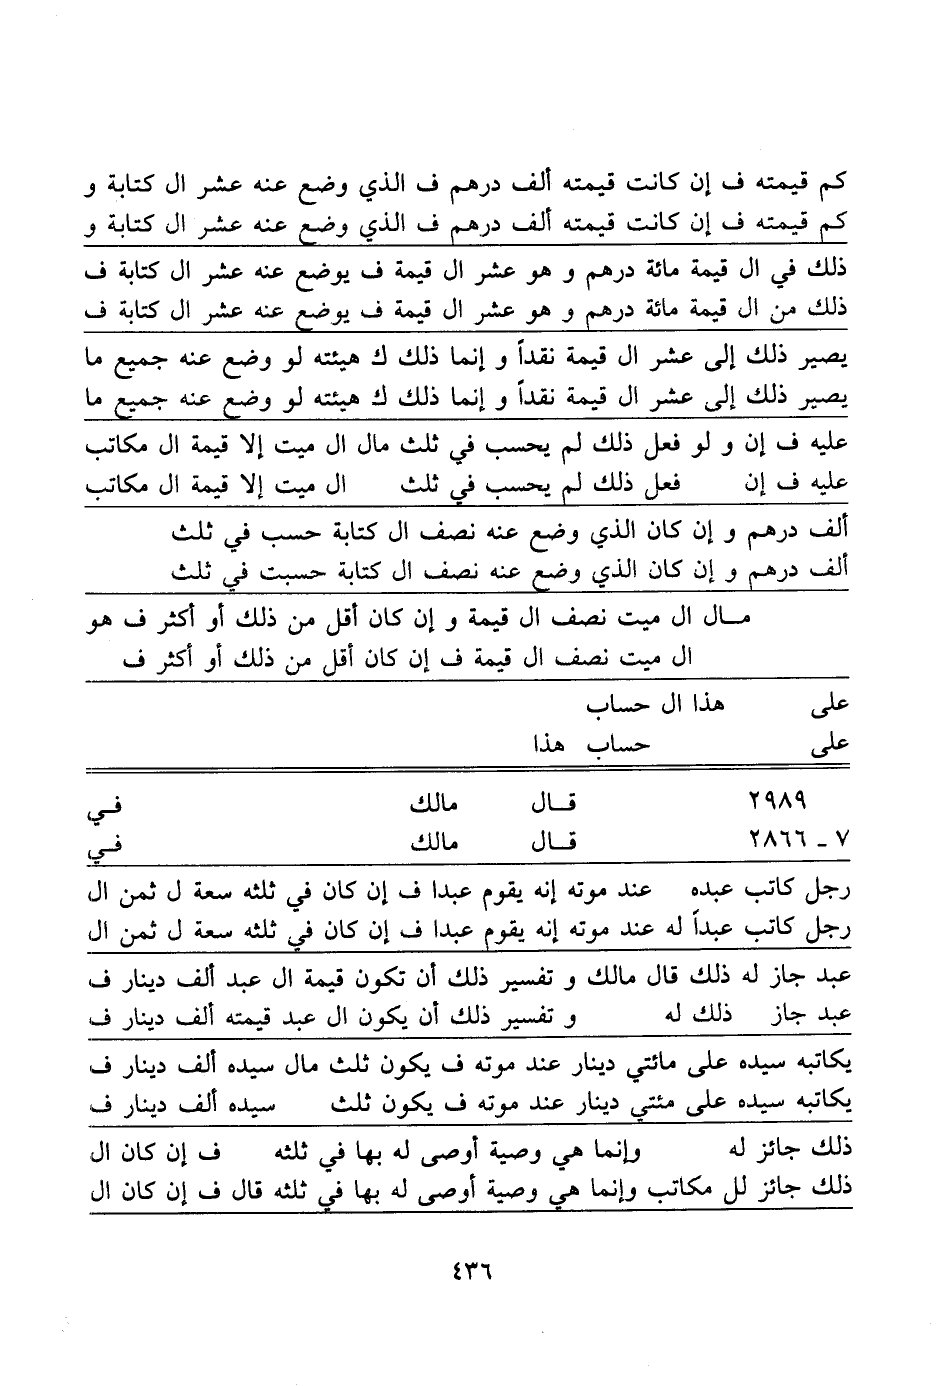 كم قيمته ف إن كانت قيمته ألف درهم ف الذي وضع عنه عشر ال كتابة و
كم قيمته ف إن كانت قيمته ألف درهم ف الذي وضع عنه عشر ال كتابة و
ذلك في ال قيمة مائة درهم و هو عشر ال قيمة ف يوضع عنه عشر ال كتابة ف
ذلك من ال قيمة مائة درهم و هو عشر ال قيمة ف يوضع عنه عشر ال كتابة ف
يصير ذلك إلى عشر ال قيمة نقداً و إنما ذلك ك هيئته لو وضع عنه جميع ما
يصير ذلك إلى عشر ال قيمة نقداً و إنما ذلك ك هيئته لو وضع عنه جميع ما
عليه ف إن و لو فعل ذلك لم يحسب في ثلث مال ال ميت إلا قيمة ال مكاتب
عليه ف إن فعل ذلك لم يحسب في ثلث ال ميت إلا قيمة ال مكاتب
ألف درهم و إن كان الذي وضع عنه نصف ال كتابة حسب في ثلث
ألف درهم و إن كان الذي وضع عنه نصف ال كتابة حسبت في ثلث
مــال ال ميت نصف ال قيمة و إن كان أقل من ذلك أو أكثر ف هو
ال ميت نصف ال قيمة ف إن كان أقل من ذلك أو أكثر ف
على هذا ال حساب
على حساب هذا
٢٩٨٩ قــال مالك فـي
٧ ـ ٢٨٦٦ قــال مالك فـي
رجل كاتب عبده عند موته إنه يقوم عبدا ف إن كان في ثلثه سعة ل ثمن ال
رجل كاتب عبداً له عند موته إنه يقوم عبدا ف إن كان في ثلثه سعة ل ثمن ال
عبد جاز له ذلك قال مالك و تفسير ذلك أن تكون قيمة ال عبد ألف دينار ف
عبد جاز ذلك له و تفسير ذلك أن يكون ال عبد قيمته ألف دينار ف
يكاتبه سيده على مائتي دينار عند موته ف يكون ثلث مال سيده ألف دينار ف
يكاتبه سيده على مئتي دينار عند موته ف يكون ثلث سيده ألف دينار ف
ذلك جائز له وإنما هي وصية أوصى له بها في ثلثه ف إن كان ال
ذلك جائز لل مكاتب وإنما هي وصية أوصى له بها في ثلثه قال ف إن كان ال
٤٣٦